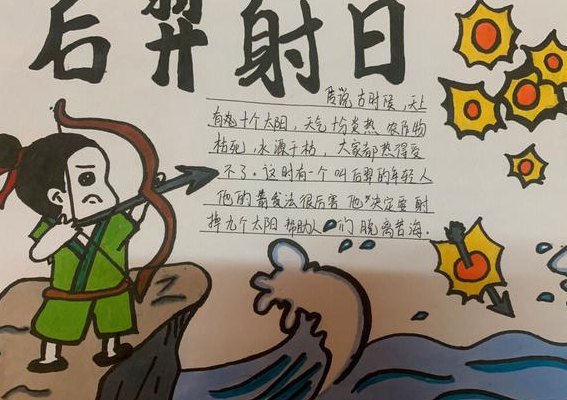 后羿射日
据说古时候,天上
有 十个太阳,天气十分炎热 农作物
枯死,水源干枯,大家都热得受
不了.这时有一个叫后羿的年轻人
他的箭发法很厉害 他决定要射
掉九个太阳 帮助人们 脱离苦海.